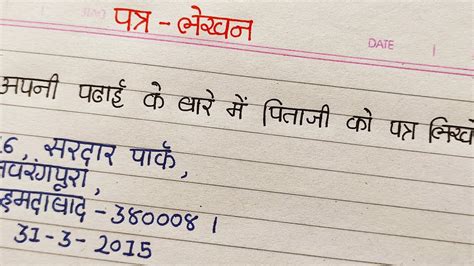 पत्र - लेखन
DATE
अपनी पढाई के बारे में पिताजी को पत्र लिखो
6, सरदार पार्क,
नवरंगपुरा,
अहमदाबाद - 380008।
31-3-2015